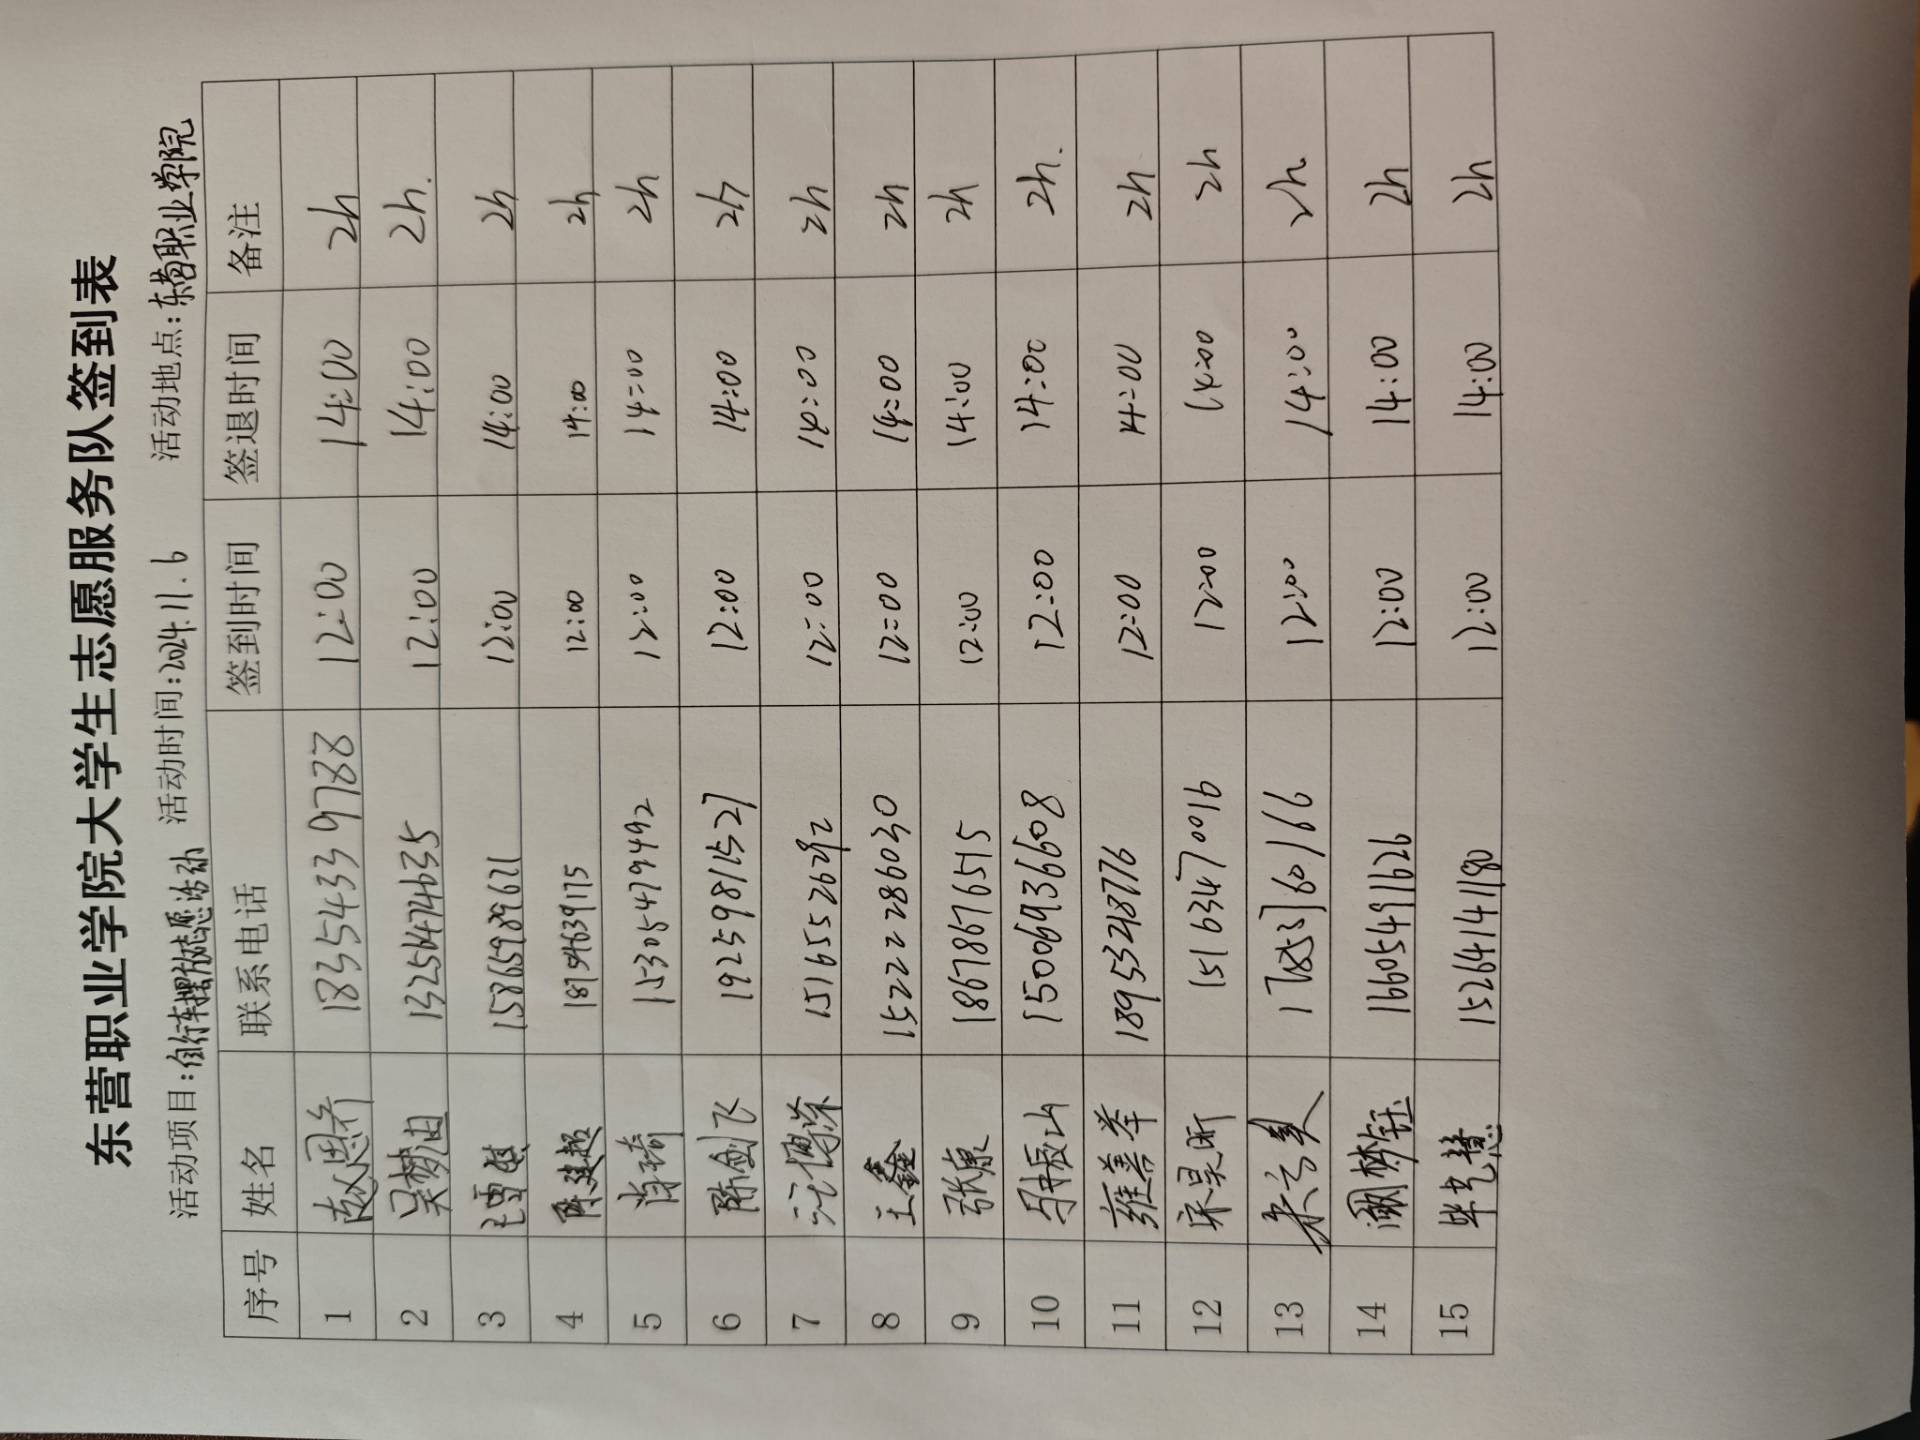 东营职业学院大学生志愿服务队签到表
活动项目:自行车摆放志愿活动 活动时间:2024.11.6 活动地点:东营职业学院
序号 姓名 联系电话 签到时间 签退时间 备注
1 赵恩乔 18354339788 12:00 14:00 2h
2 吴梦迪 13256474635 12:00 14:00 2h.
3 15865989671 12:00 14:00 2h
4 陈建超 18794639175 12:00 14:00 2h
5 肖琦 15305479492 12:00 14:00 2h
6 陈剑飞 19259811527 12:00 14:00 2h
7 12:00 14:00 2h
8 王鑫 15222286030 12:00 14:00 2h
9 张康 18678676515 12:00 14:00 2h
10 马辰山 15006936608 12:00 14:00 2h.
11 雍善举 18953248776 12:00 14:00 2h
12 宋昊昕 15163470016 12:00 14:00 2h
13 朱云昊 17853160166 12:00 14:00 2h
14 阚梦钰 16605491626 12:00 14:00 2h
15 毕艺慧 15264141180 12:00 14:00 2h